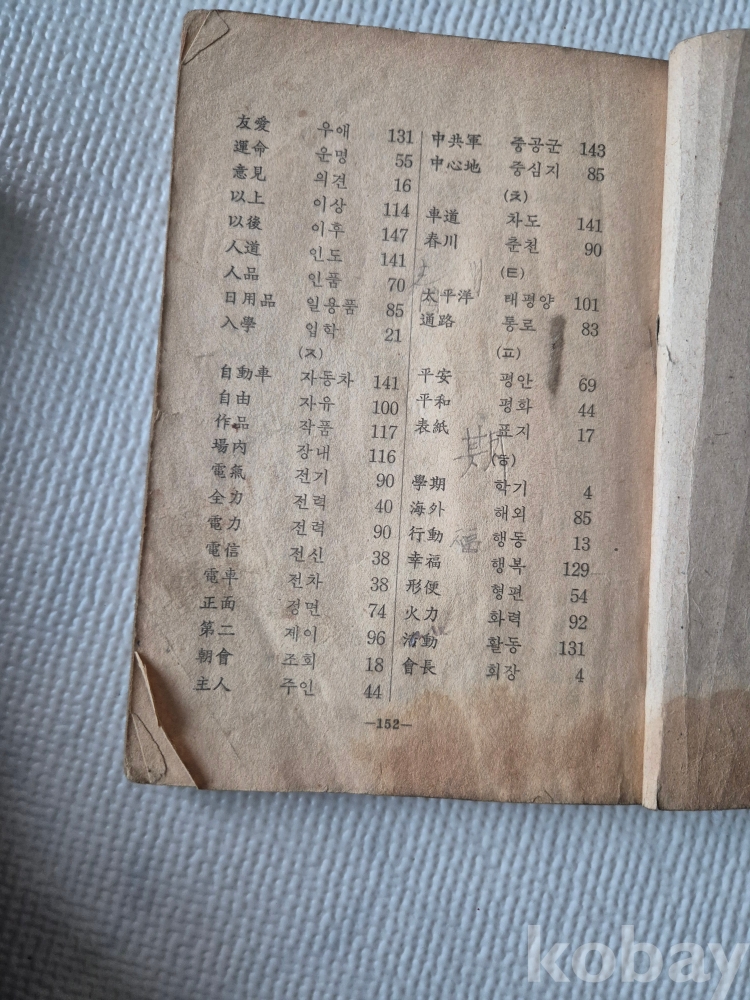 友愛 우애 131
運命 운명 55
意見 의견 16
以上 이상 114
以後 이후 147
人道 인도 141
人品 인품 70
日用品 일용품 85
入學 입학 21
(ㅈ)
自動車 자동차 141
自由 자유 100
作品 작품 117
場內 장내 116
電氣 전기 90
全力 전력 40
電力 전력 90
電信 전신 38
電車 전차 38
正面 정면 74
第二 제이 96
朝會 조회 18
主人 주인 44
中共軍 중공군 143
中心地 중심지 85
(ㅊ)
車道 차도 141
春川 춘천 90
(ㅌ)
太平洋 태평양 101
通路 통로 83
(ㅍ)
平安 평안 69
平和 평화 44
表紙 표지 17
期
(ㅎ)
學期 학기 4
海外 해외 85
行動 행동 13
福
幸福 행복 129
形便 형편 54
火力 화력 92
活動 활동 131
會長 회장 4
—152—
kobay